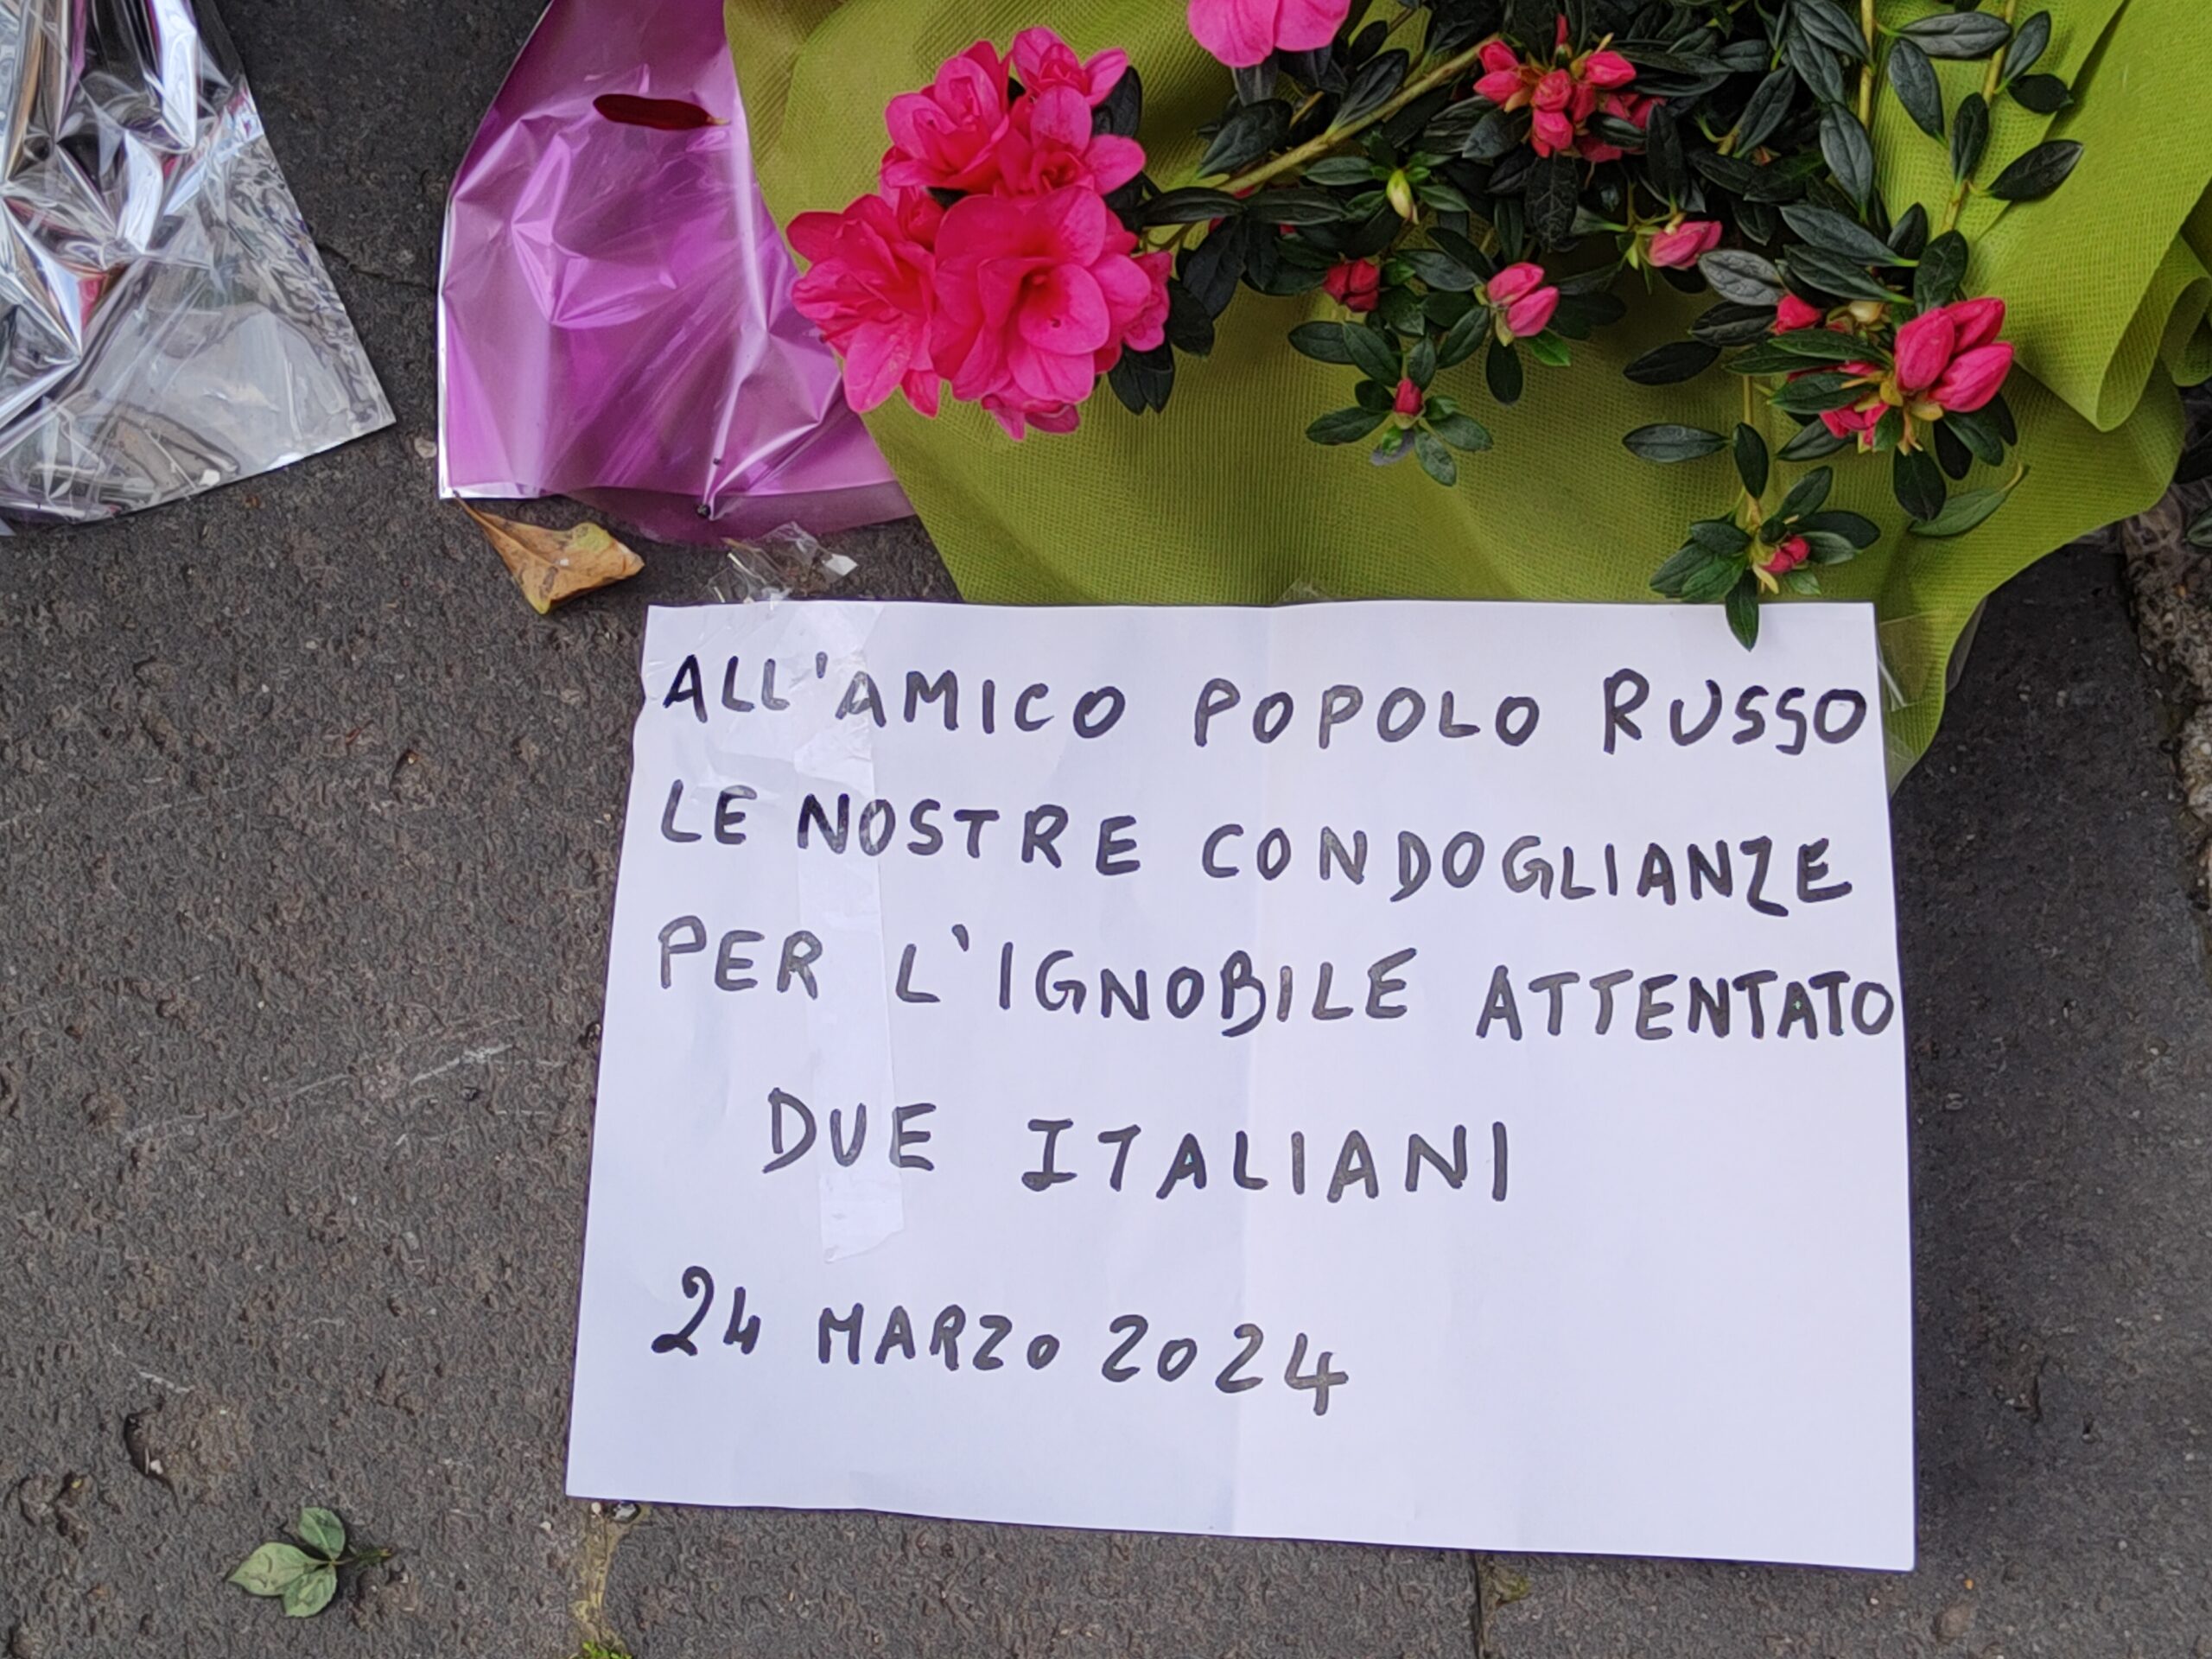 ALL'AMICO POPOLO RUSSO
LE NOSTRE CONDOGLIANZE
PER L'IGNOBILE ATTENTATO
DUE ITALIANI
24 MARZO 2024